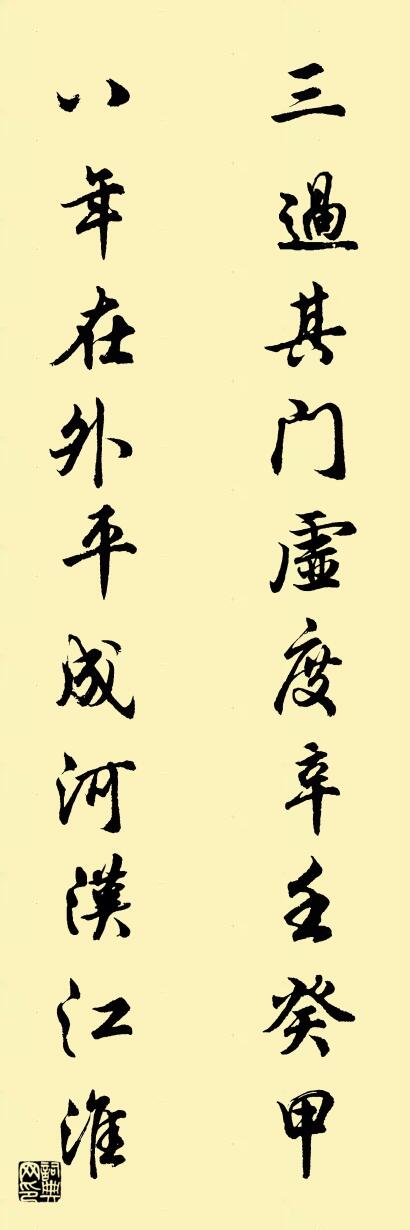 三過其门虚度辛壬癸甲
八年在外平成河漢江淮
詞典网印